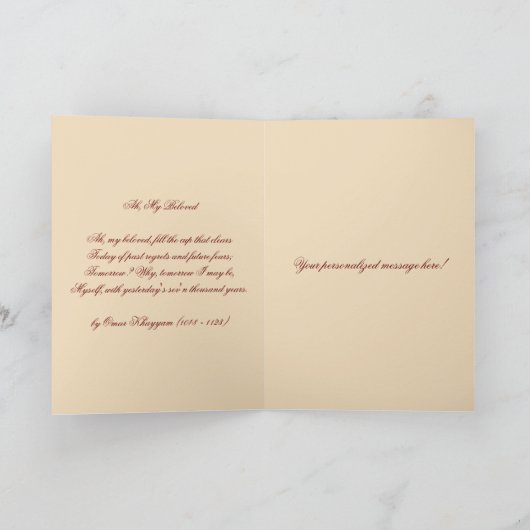 Ah, My Beloved
Ah, my beloved, fill the cup that clears
Today of past regrets and future fears;
Tomorrow? Why, tomorrow I may be,
Myself, with yesterday's sev'n thousand years.
by Omar Khayyam (1018 - 1123)
Your personalized message here!